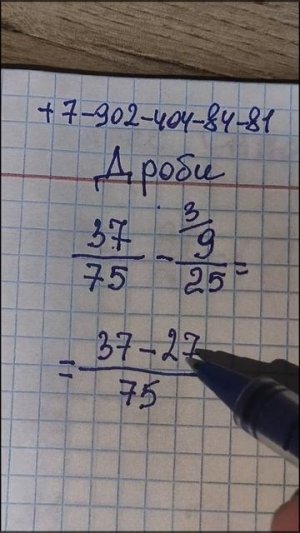 +7-902-404-84-81
Дроби
37/75 - 9/25 =
3/
= (37-27)/75